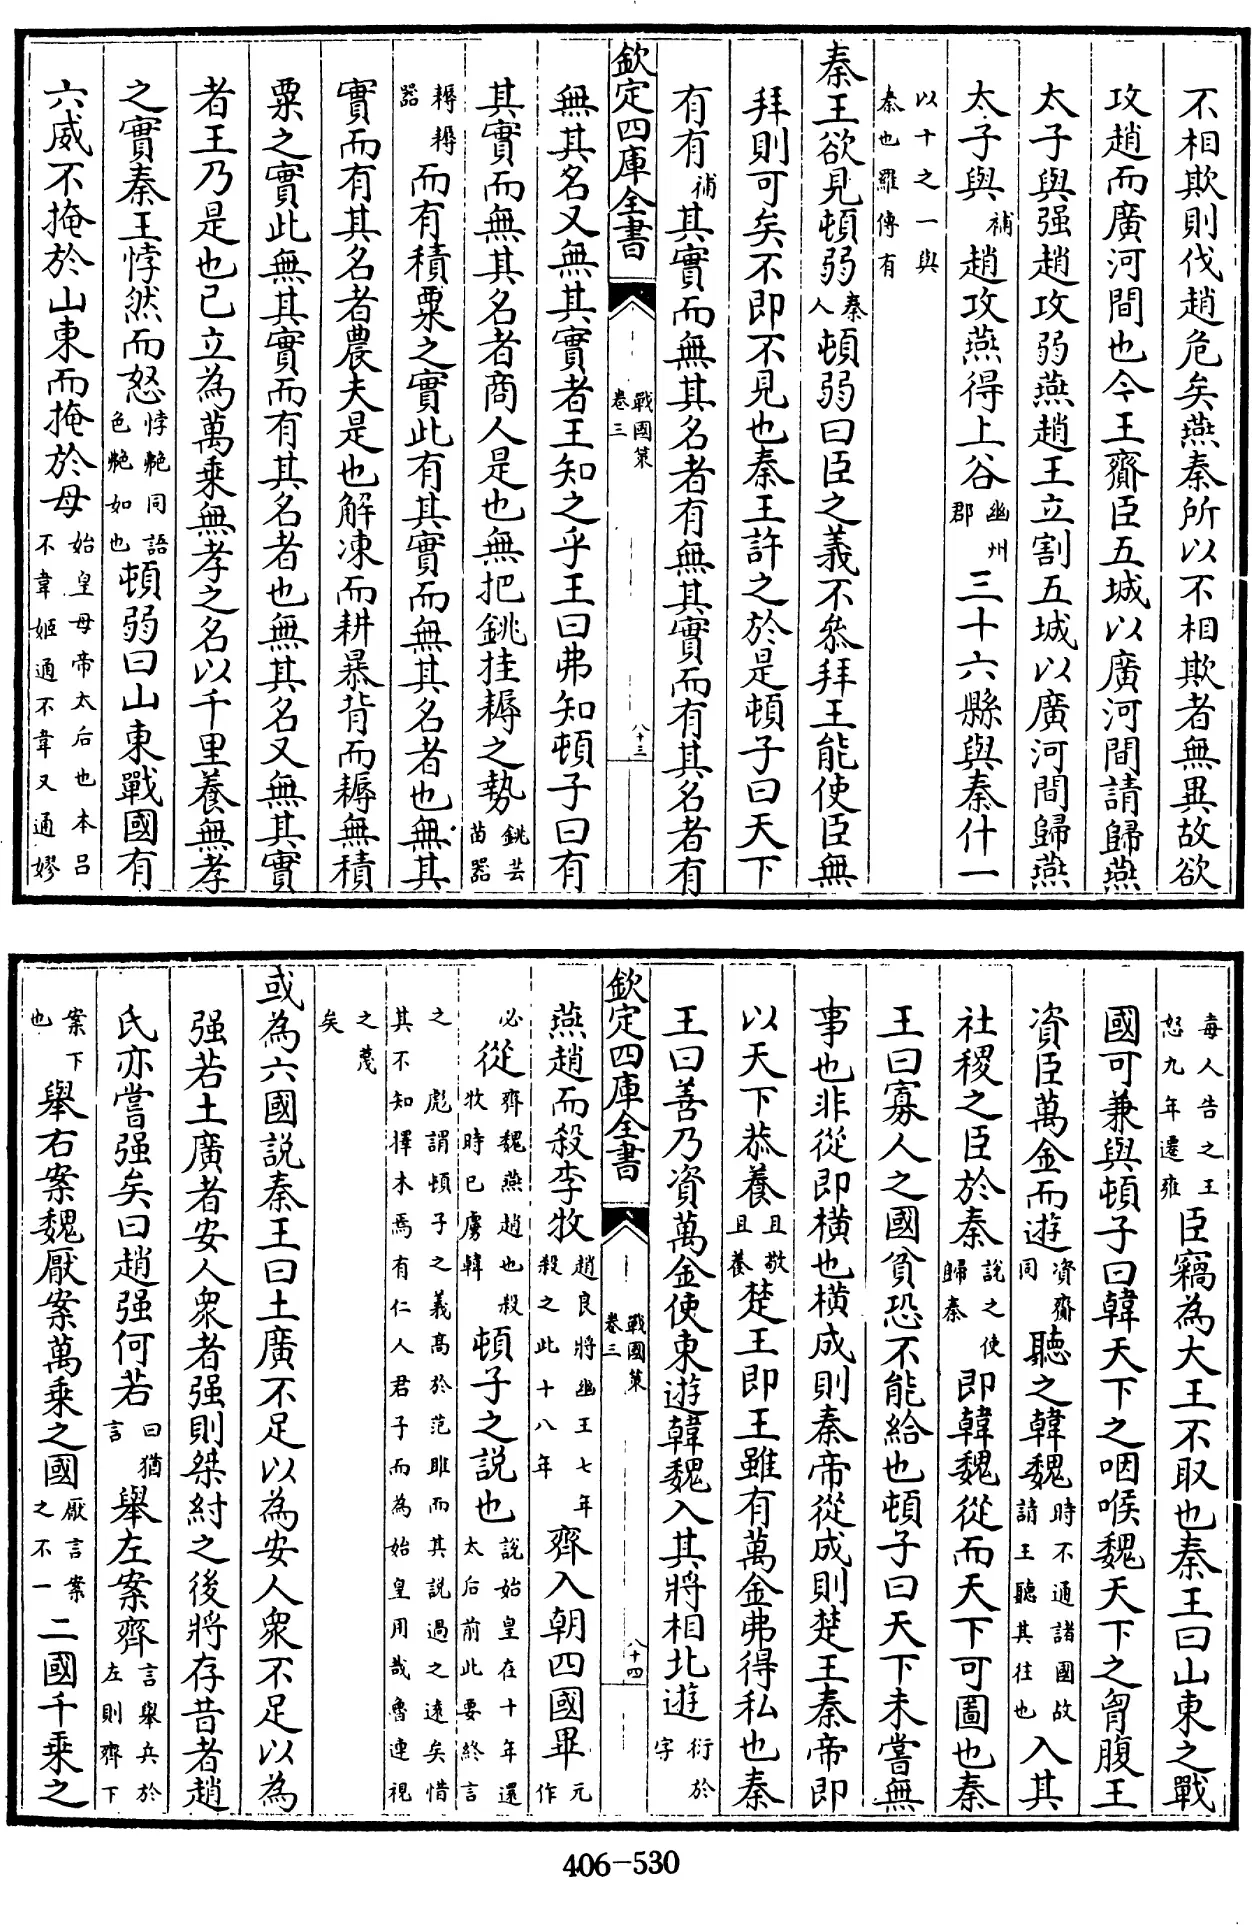 不相欺則伐趙危矣燕秦所以不相欺者無異故欲
攻趙而廣河間也今王齎臣五城以廣河間請歸燕
太子與强趙攻弱燕趙王立割五城以廣河間歸燕
太子與補趙攻燕得上谷幽州郡三十六縣與秦什一
以十之一與秦也羅傳有
秦王欲見頓弱秦人頓弱曰臣之義不叅拜王能使臣無
拜則可矣不即不見也秦王許之於是頓子曰天下
有有補其實而無其名者有無其實而有其名者有
欽定四庫全書
戰國策卷三
八十三
無其名又無其實者王知之乎王曰弗知頓子曰有
其實而無其名者商人是也無把銚挂耨之勢銚芸苗器
耨耨器而有積粟之實此有其實而無其名者也無其
實而有其名者農夫是也解凍而耕暴背而耨無積
粟之實此無其實而有其名者也無其名又無其實
者王乃是也已立為萬乘無孝之名以千里養無孝
之實秦王悖然而怒悖艴同語色艴如也頓弱曰山東戰國有
六威不掩於山東而掩於母始皇母帝太后也本呂不韋姬通不韋又通嫪
毐人告之王怒九年遷雍臣竊為大王不取也秦王曰山東之戰
國可兼與頓子曰韓天下之咽喉魏天下之胷腹王
資臣萬金而遊資齎同聽之韓魏時不通諸國故請王聽其往也入其
社稷之臣於秦說之使歸秦即韓魏從而天下可圖也秦
王曰寡人之國貧恐不能給也頓子曰天下未嘗無
事也非從即橫也橫成則秦帝從成則楚王秦帝即
以天下恭養且敬且養楚王即王雖有萬金弗得私也秦
王曰善乃資萬金使東遊韓魏入其將相北遊衍於字
欽定四庫全書
戰國策卷三
八十四
燕趙而殺李牧趙良將幽王七年殺之此十八年齊入朝四國畢元作
必從齊魏燕趙也殺牧時已虜韓頓子之說也說始皇在十年還太后前此要終言
之 彪謂頓子之義高於范雎而其說過之遠矣惜其不知擇木焉有仁人君子而為始皇用哉魯連視
之蔑矣
或為六國說秦王曰土廣不足以為安人衆不足以為
强若土廣者安人衆者强則桀紂之後將存昔者趙
氏亦嘗强矣曰趙强何若曰猶言舉左案齊言舉兵於左則齊下
案下也舉右案魏厭案萬乘之國厭言案之不一二國千乘之
406-530